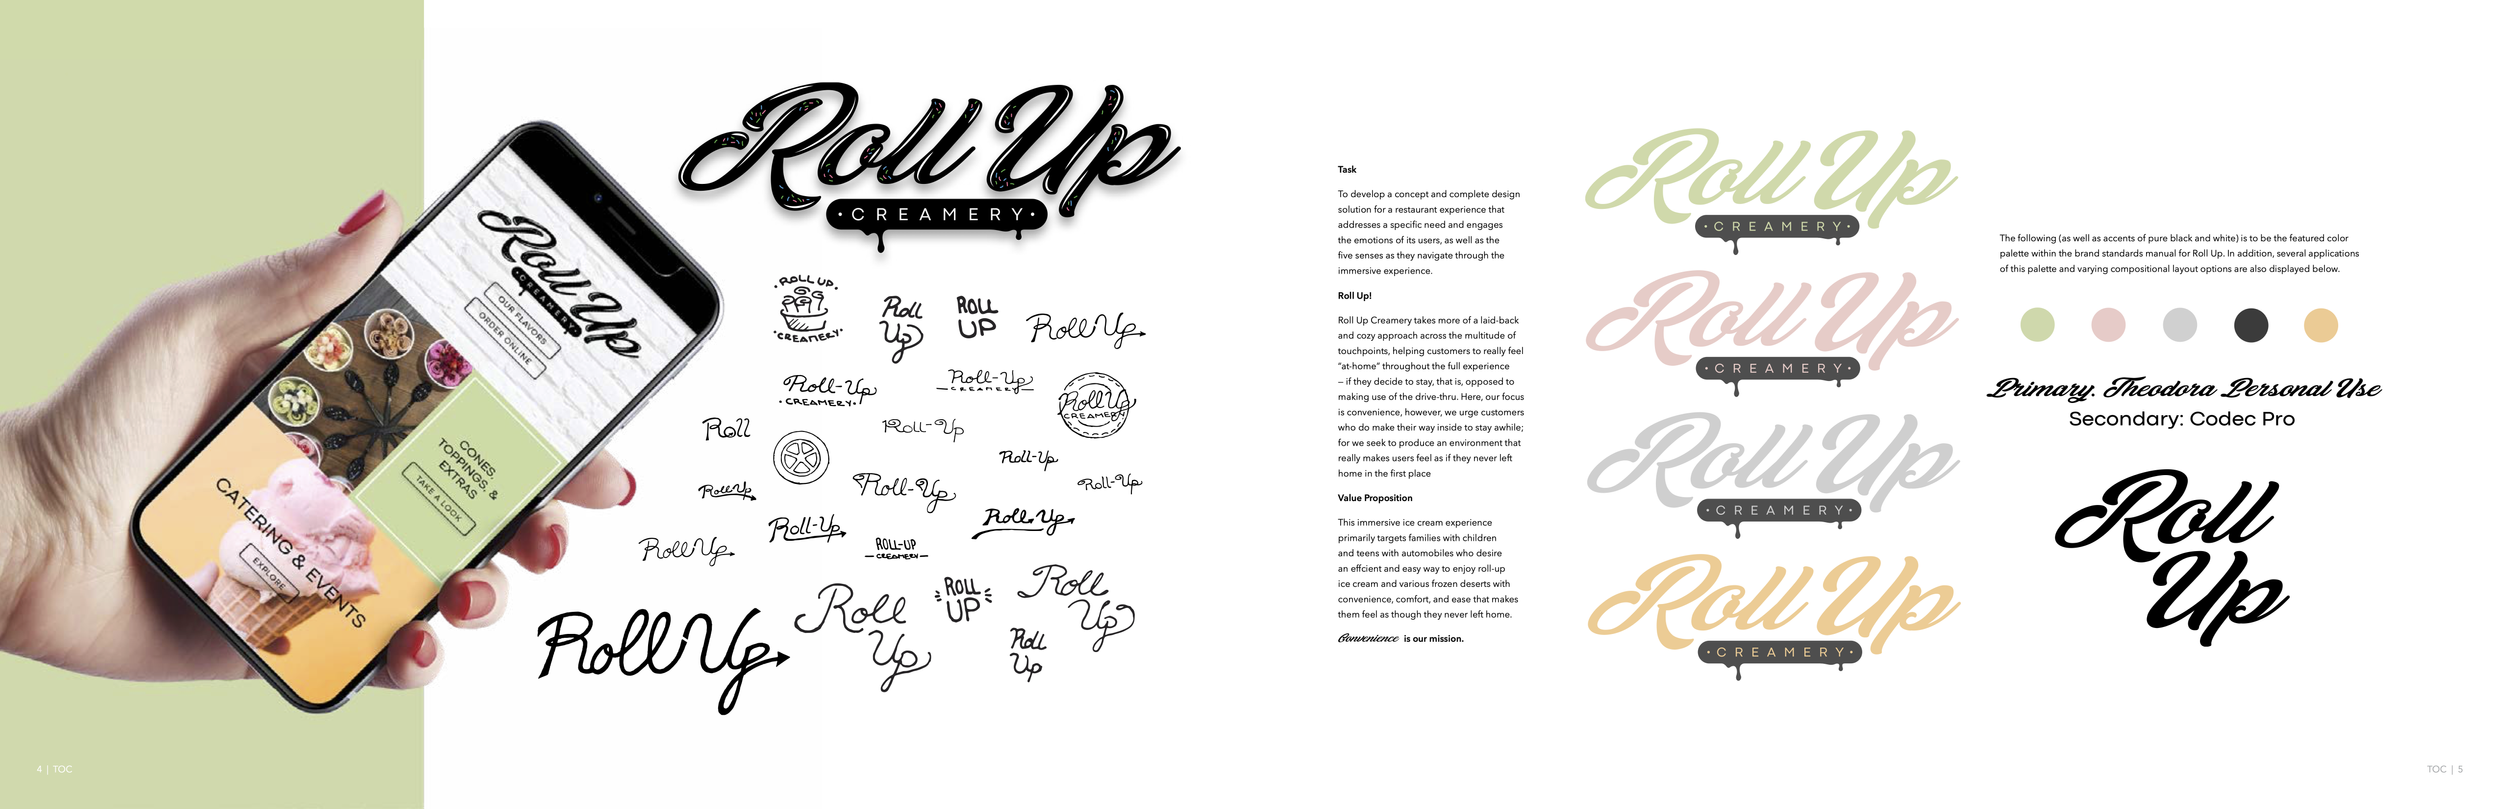 Roll Up
• CREAMERY •
Roll Up
CREAMERY
OUR FLAVORS
ORDER ONLINE
CONES,
TOPPINGS, &
EXTRAS
TAKE A LOOK
CATERING & EVENTS
EXPLORE
• ROLL UP •
• CREAMERY •
Roll
Up
ROLL
UP
Roll Up
Roll-Up
• CREAMERY •
Roll-Up
CREAMERY
Roll Up
CREAMERY
Roll
Roll-Up
Roll-Up
Roll Up
Roll-Up
Roll-Up
Roll-Up
Roll Up
Roll Up
ROLL-UP
— CREAMERY —
Roll Up
Roll
Up
ROLL
UP
Roll
Up
Roll
Up
4 | TOC
Task
To develop a concept and complete design
solution for a restaurant experience that
addresses a specific need and engages
the emotions of its users, as well as the
five senses as they navigate through the
immersive experience.
Roll Up!
Roll Up Creamery takes more of a laid-back
and cozy approach across the multitude of
touchpoints, helping customers to really feel
"at-home" throughout the full experience
– if they decide to stay, that is, opposed to
making use of the drive-thru. Here, our focus
is convenience, however, we urge customers
who do make their way inside to stay awhile;
for we seek to produce an environment that
really makes users feel as if they never left
home in the first place
Value Proposition
This immersive ice cream experience
primarily targets families with children
and teens with automobiles who desire
an effcient and easy way to enjoy roll-up
ice cream and various frozen deserts with
convenience, comfort, and ease that makes
them feel as though they never left home.
Convenience is our mission.
Roll Up
• CREAMERY •
Roll Up
• CREAMERY •
Roll Up
• CREAMERY •
Roll Up
• CREAMERY •
The following (as well as accents of pure black and white) is to be the featured color
palette within the brand standards manual for Roll Up. In addition, several applications
of this palette and varying compositional layout options are also displayed below.
Primary: Theodora Personal Use
Secondary: Codec Pro
Roll
Up
TOC | 5